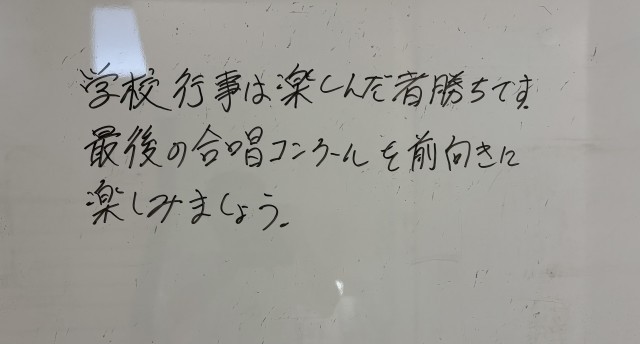 学校行事は楽しんだ者勝ちです
最後の合唱コンクールを前向きに
楽しみましょう。